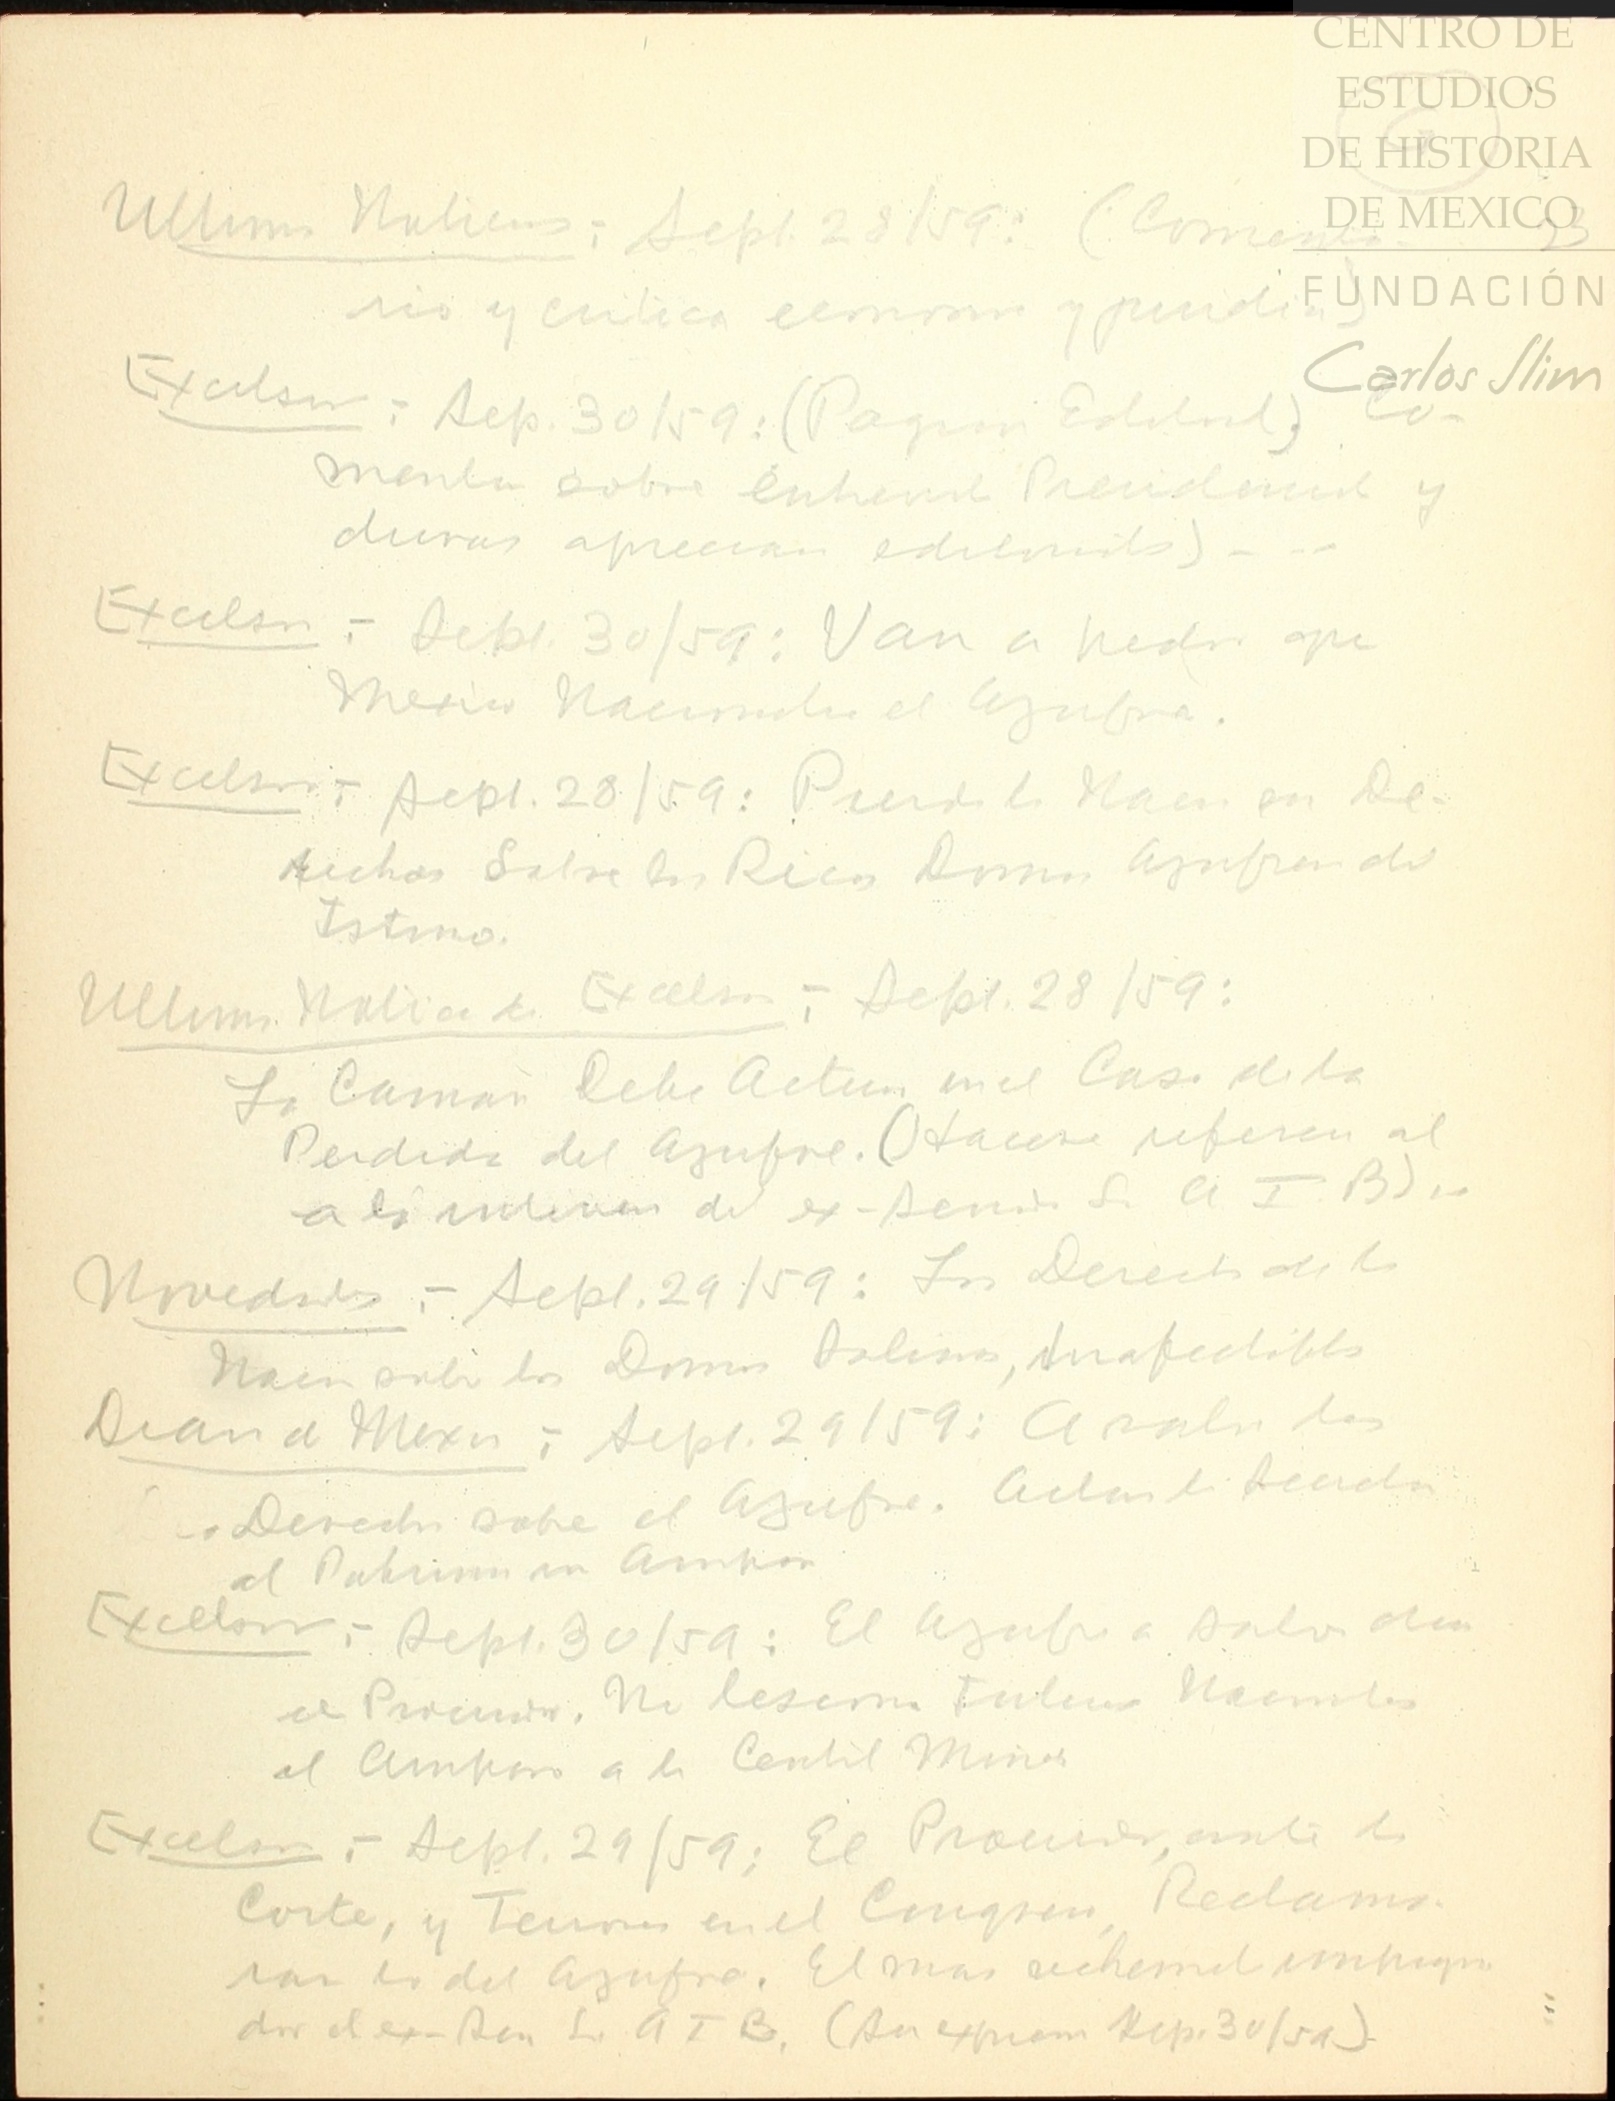 CENTRO DE
ESTUDIOS
DE HISTORIA
DE MEXICO
FUNDACIÓN
Carlos Slim
Ultimas Noticias; Sept. 28/59: (Comenta-
rio y critica economo y juridica)
Excelsior; Sep. 30/59: (Pagina Editorial) Co-
menta sobre Presidencial y
duras editorial)
Excelsior; Sept. 30/59: Van a Pedir que
Mexico Nacionalice el Azufre.
Excelsior; Sept. 28/59: Pierde la Nacion De-
rechos Sobre los Ricos Domos Azufreros del
Istmo.
Ultimas Noticias de Excelsior; Sept. 28/59:
La Camara Debe Actuar en el Caso de la
Perdida del Azufre. (Hacese referencia al
a la del ex-Senador L. A I B)
Novedades;- Sept. 29/59: Los Derechos de la
Nacion sobre los Domos Salinos,
Diario de Mexico; Sept. 29/59: A salvo los
Derechos sobre el Azufre. Aclara la
al Patrimonio Amparo
Excelsior;- Sept. 30/59: El Azufre a salvo dice
el Procurador. No Lesiona Intereses Nacionales
el Amparo a la Central Minera
Excelsior;- Sept. 29/59; El Procurador, ante la
Corte, y en el Congreso, Reclama-
ran lo del Azufre. El mas impugna
dor el ex-Sen L. A I B. (Sep. 30/59)-